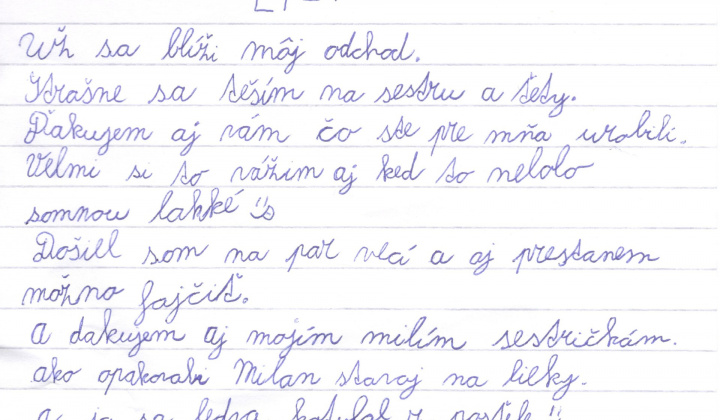 Už sa blíži môj odchod.
Strašne sa teším na sestru a tety.
Ďakujem aj vám čo ste pre mňa urobili.
Velmi si to vážim aj ked to nelolo
somnou lahké
Došiel som na par vecí a aj prestanem
možno fajčiť.
a dakujem aj mojím milím sestričkám.
ako opakovali Milan staraj na lieky.
aj ja sa ledva